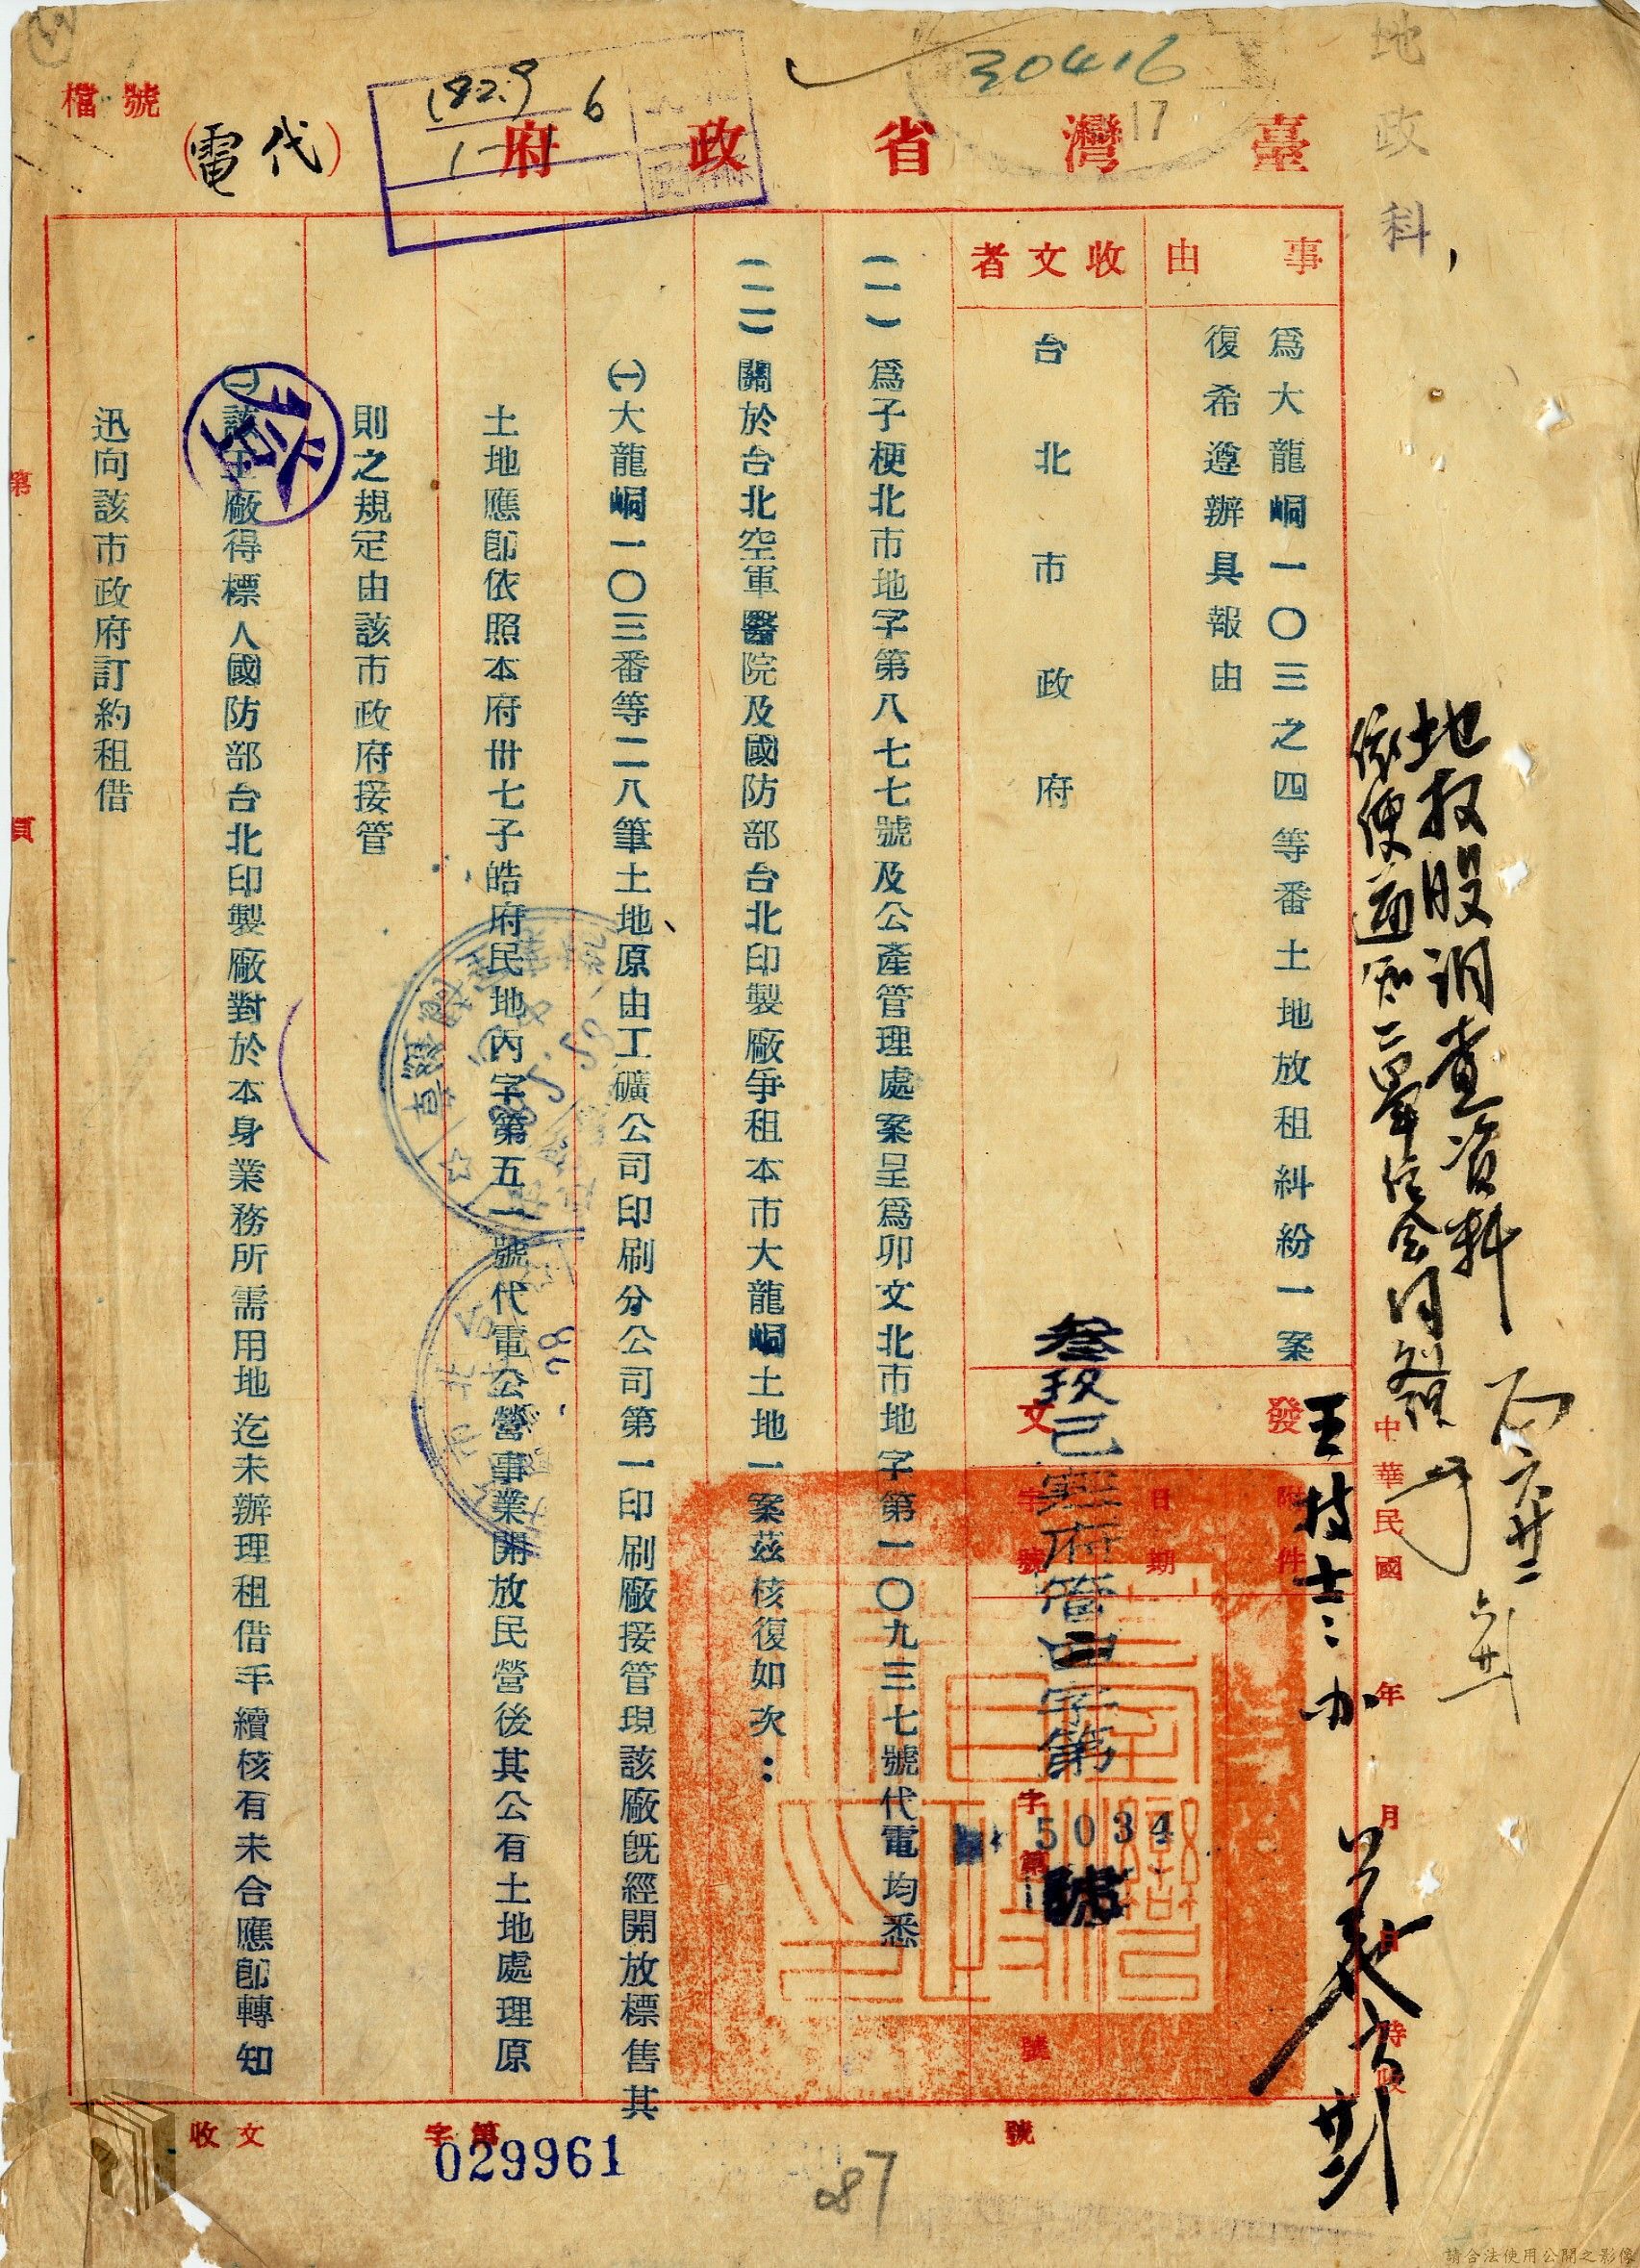 地政科
30416
17
臺灣省政府
(代電)
檔號
182.9
6
1
事由
為大龍峒一〇三之四等番土地放租糾紛一案
復希遵辦具報由
收文者
台北市政府
發文
附件
日期
字號
叁玖已
府管四字第
字第
5034
號
號
中華民國 年 月 日 時
(一)為子梗北市地字第八七七號及公產管理處案呈為卯文北市地字第一〇九三七號代電均悉
(二)關於台北空軍醫院及國防部台北印製廠爭租本市大龍峒土地一案茲核復如次:
㈠大龍峒一〇三番等二八筆土地原由工礦公司印刷分公司第一印刷廠接管現該廠既經開放標售其
土地應卽依照本府卅七子皓府民地丙字第五一號代電公營事業開放民營後其公有土地處理原
則之規定由該市政府接管
廠得標人國防部台北印製廠對於本身業務所需用地迄未辦理租借手續核有未合應卽轉知
迅向該市政府訂約租借
登
地权股調查資料
王技士:办
第 頁
收文
字第
029961
號
87
請合法使用公開之影像